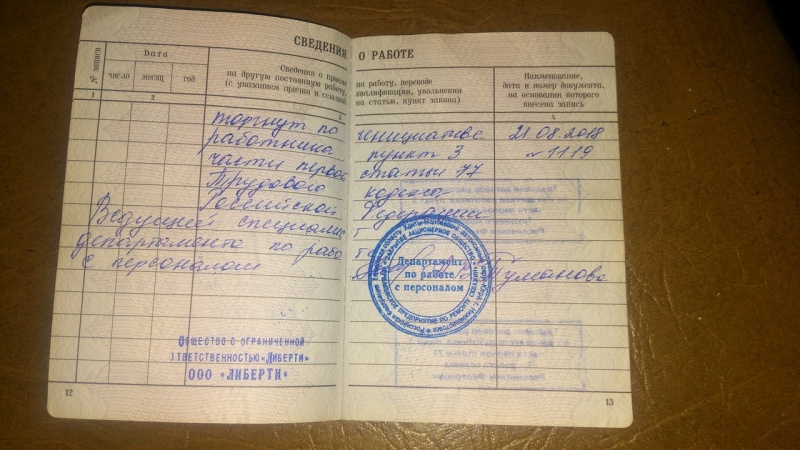 СВЕДЕНИЯ О РАБОТЕ
№ записи
Дата
число
месяц
год
Сведения о приеме
на другую постоянную работу,
(с указанием причин и ссылкой
на работу, переводе
квалификации, увольнении
на статью, пункт закона)
Наименование,
дата и номер документа,
на основании которого
внесена запись
1 2 3 4
торгнут по инициативе 21.08.2018
работника пункт 3 № 1119
части первой статьи 77
Трудового кодекса
Российской Федерации
Ведущий специалист
департамента по рабо
с персоналом Туманова
Департамент
по работе
с персоналом
ОБЩЕСТВО С ОГРАНИЧЕННОЙ
ОТВЕТСТВЕННОСТЬЮ «ЛИБЕРТИ»
ООО «ЛИБЕРТИ»
12
13